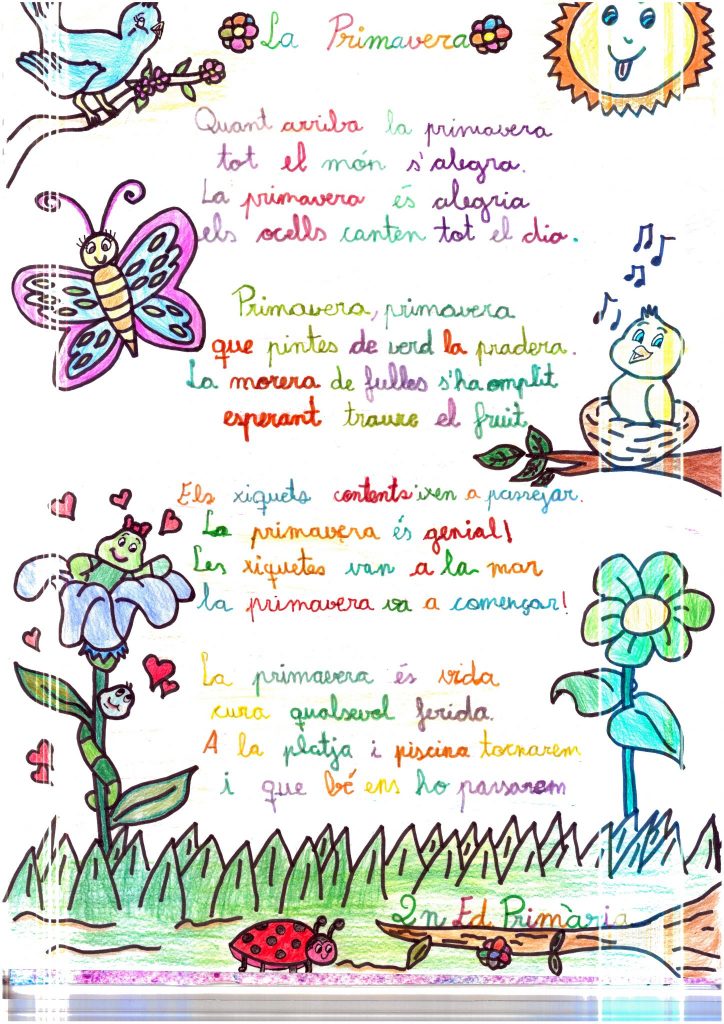 La Primavera
Quant arriba la primavera
tot el món s'alegra.
La primavera és alegria
els ocells canten tot el dia.
Primavera, primavera
que pintes de verd la pradera.
La morera de fulles s'ha omplit
esperant traure el fruit
Els xiquets contents ixen a passejar.
La primavera és genial!
Les xiquetes van a la mar
la primavera va a començar!
La primavera és vida
cura qualsevol ferida.
A la platja i piscina tornarem
i que bé ens ho passarem
2n Ed. Primària